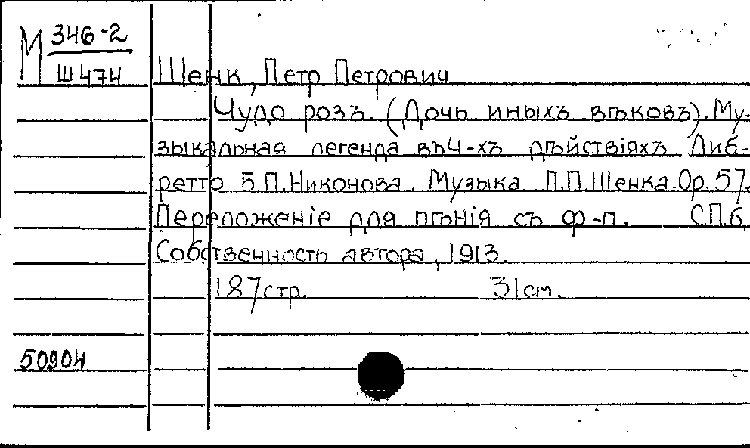 М 346-2
Ш474
Шенк, Петр Петрович
Чудо розъ. (Дочь иныхъ вѣковъ). Му-
зыкальная легенда въ 4-хъ дѣйствіяхъ. Либ-
ретто Б.П.Никонова. Музыка П.П.Шенка. Op. 57.
Переложеніе для пѣнія съ ф-п. СПб
Собственность автора, 1913.
187 стр. 31 cm.